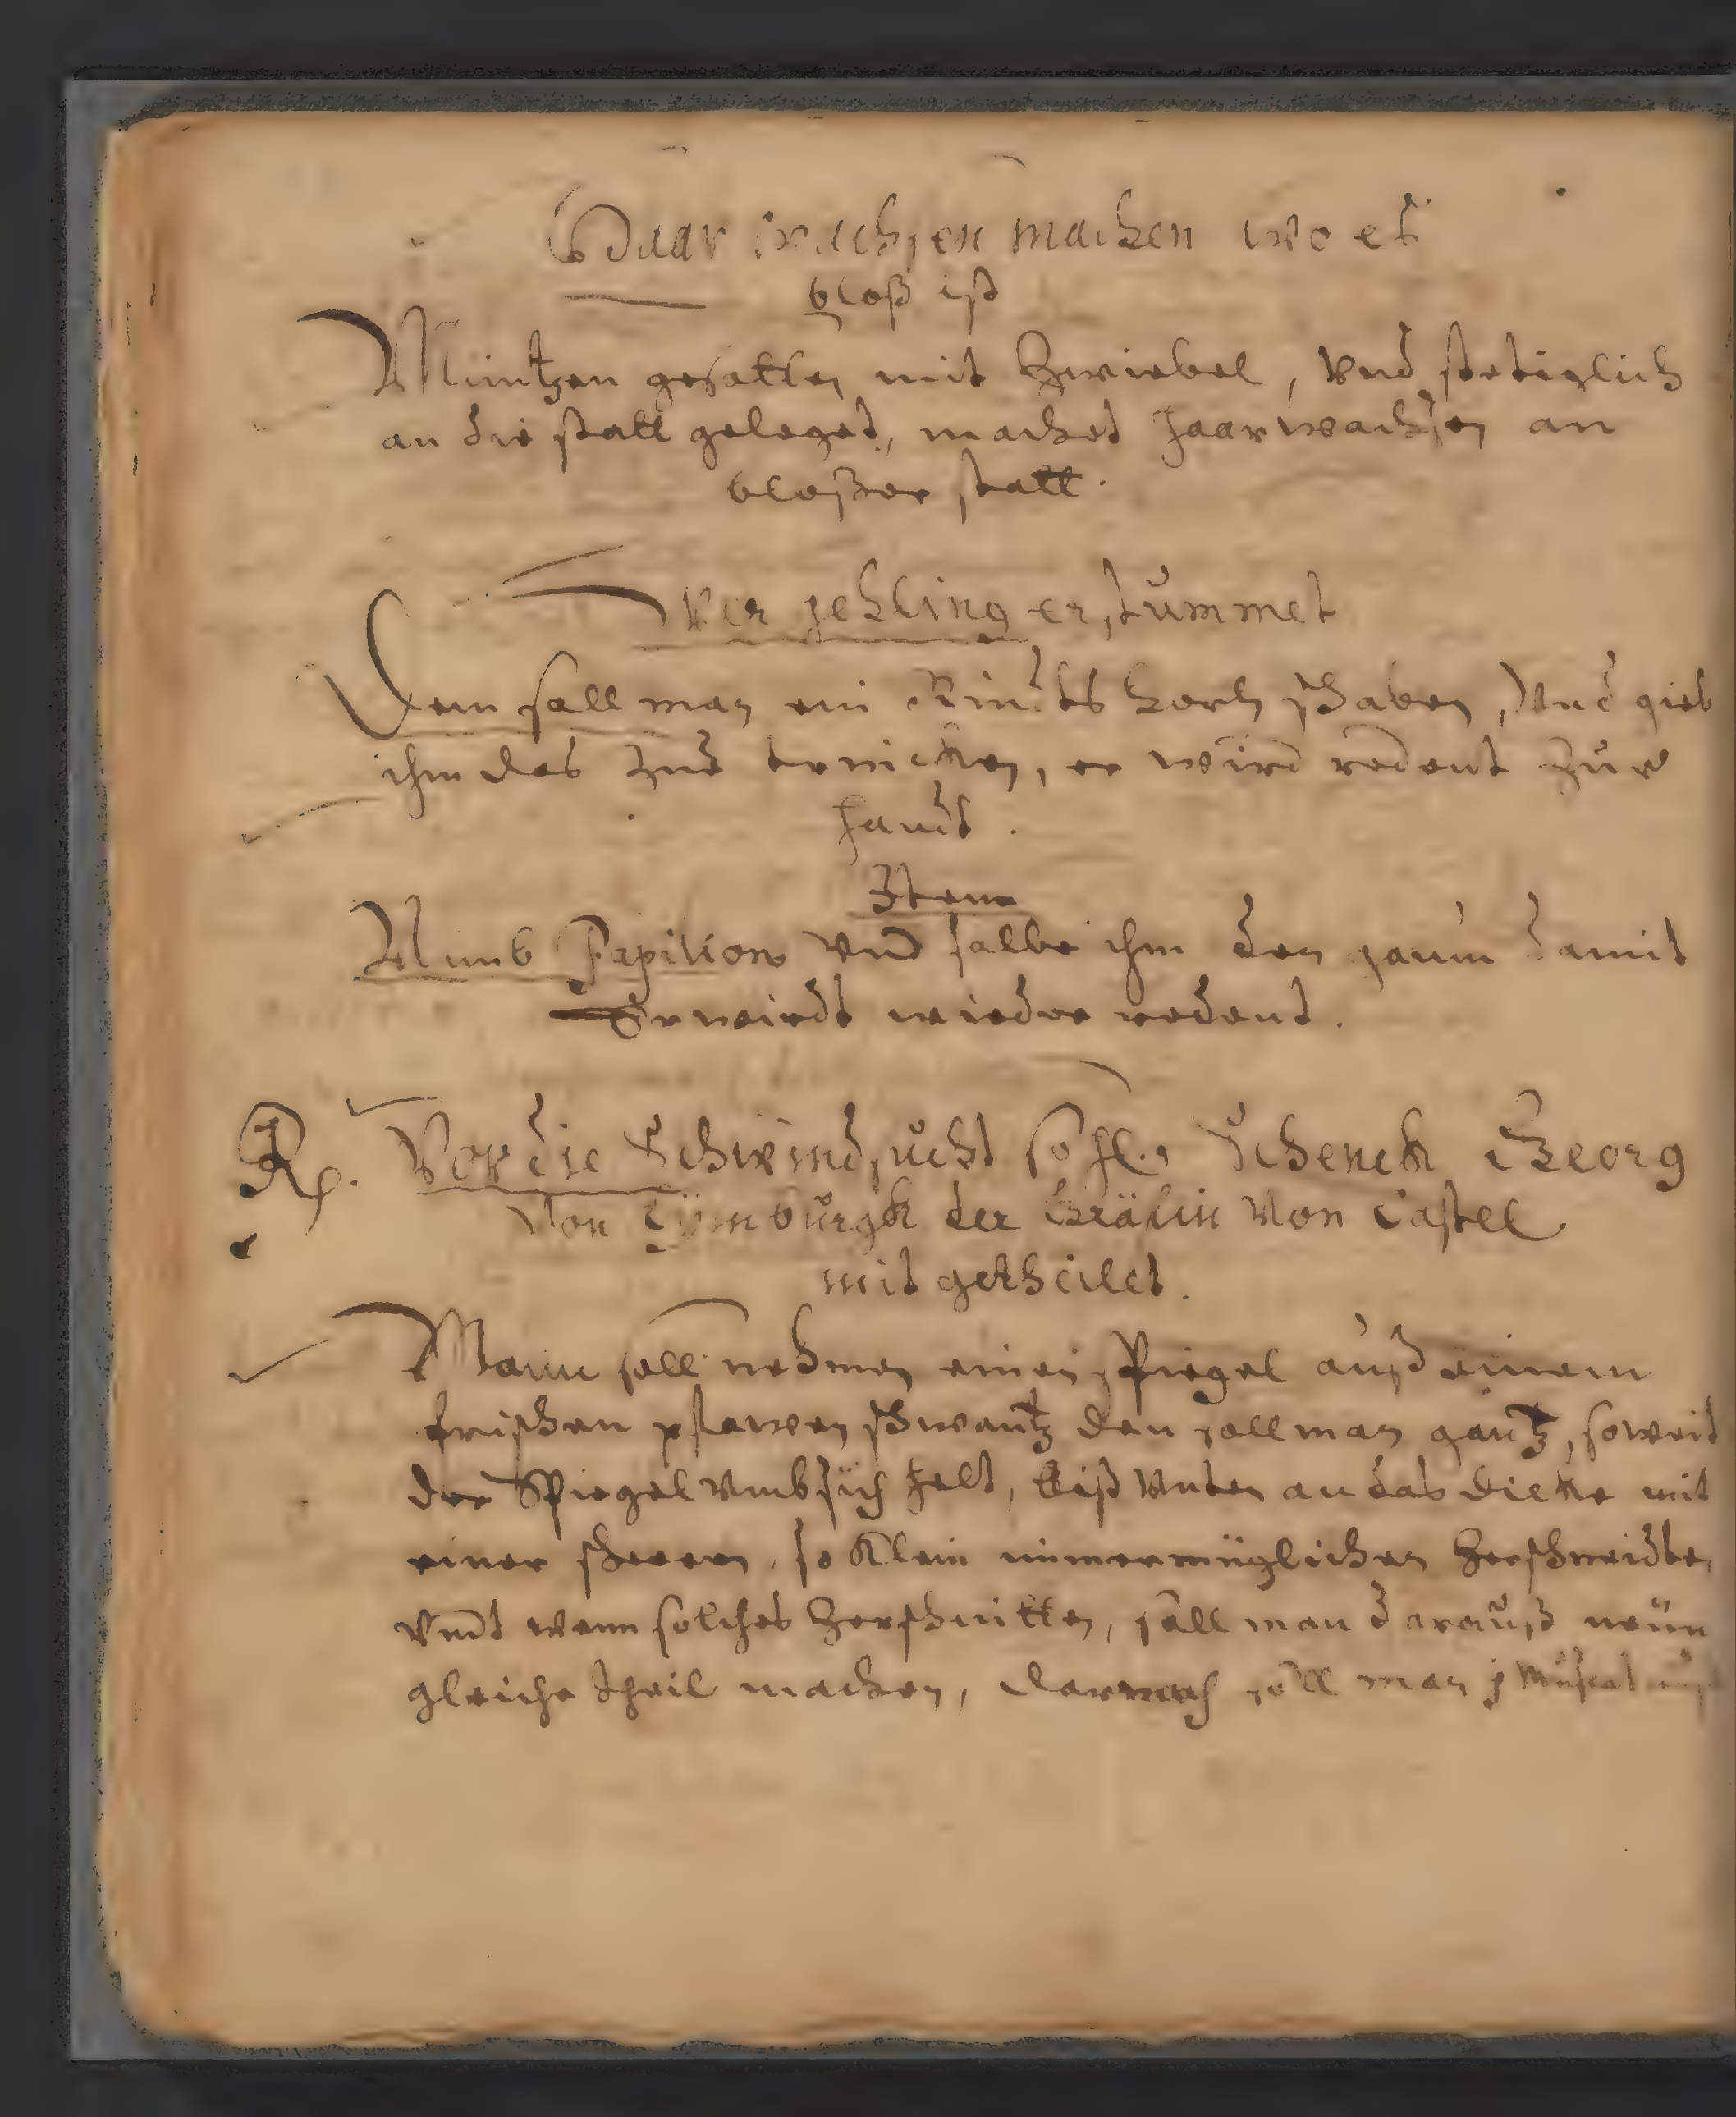 Haar wachsen machen wo es
bloß ist
Müntzen gesotten mit Zwiebel, vnd stetiglich
an die statt geleget, machet haar wachsen an
bloßer statt.
Wer gehling erstummet
Dem soll man ein Rindts horn schaben, Vnd gieb
ihm das zue trincken, er wird redent zur
handt.
Item
Nimb Papilion vnd salbe ihm den gaum damit
Er wirdt wieder redent.
Rp. Vor die Schwindsucht so hl. Schenck Georg
Von Lymburgk der Gräfin Von Castel
mit getheilet.
Mann soll nehmen einen spiegel auß einem
frischen pfawen schwantz den soll man gantz, soweit
der Spiegel vmb sich helt, biß vnten an das dicke mit
einer scheren, so klein immer müglichen zerschneidten
Vndt wenn solches zerschnitten, soll man darauß neün
gleiche theil machen, darnach soll man j Muscat